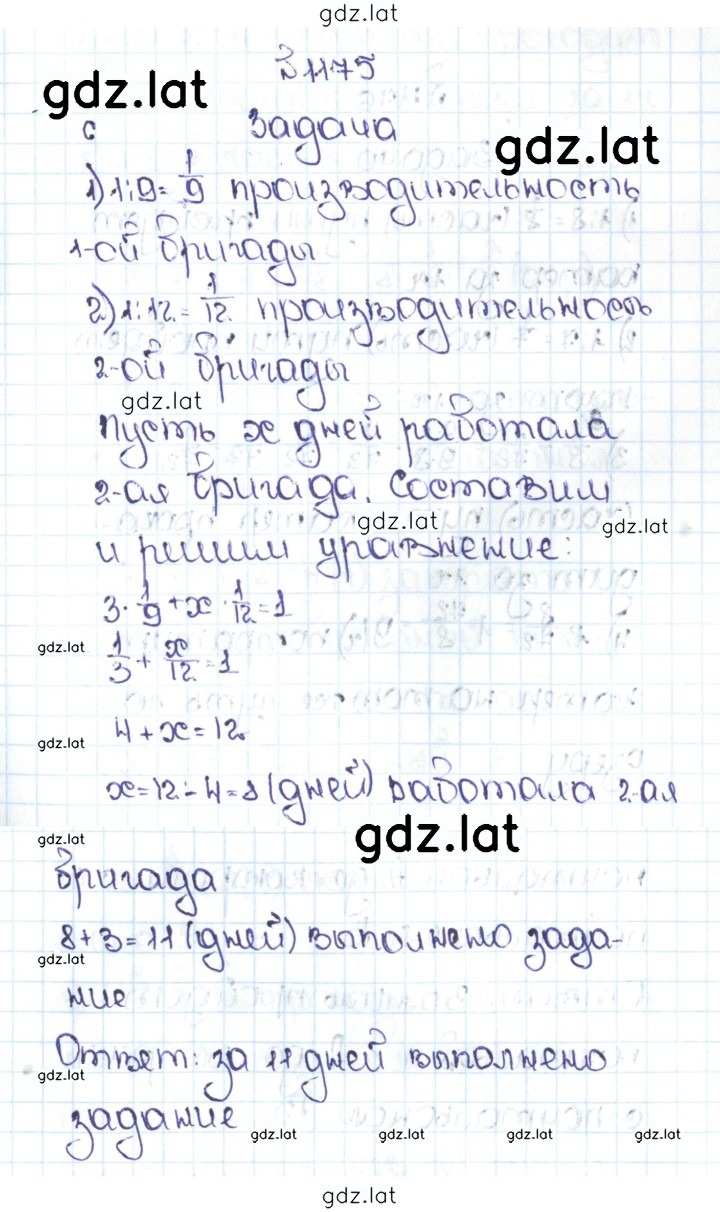 gdz.lat
№1175
gdz.lat
с Задача
gdz.lat
1) 1:9= 1/9 производительность
1-ой бригады
2) 1:12= 1/12 производительность
2-ой бригады
gdz.lat
Пусть x дней работала
2-ая бригада. Составим
gdz.lat
gdz.lat
и решим уравнение:
3· 1/9 +x · 1/12 =1
gdz.lat
1/3 + x/12 =1
4+x=12
gdz.lat
x=12-4=8 (дней) работала 2-ая
gdz.lat
gdz.lat
бригада
8+3=11 (дней) выполнено зада-
gdz.lat
ние
Ответ: за 11 дней выполнено
gdz.lat
задание
gdz.lat gdz.lat gdz.lat gdz.lat
gdz.lat